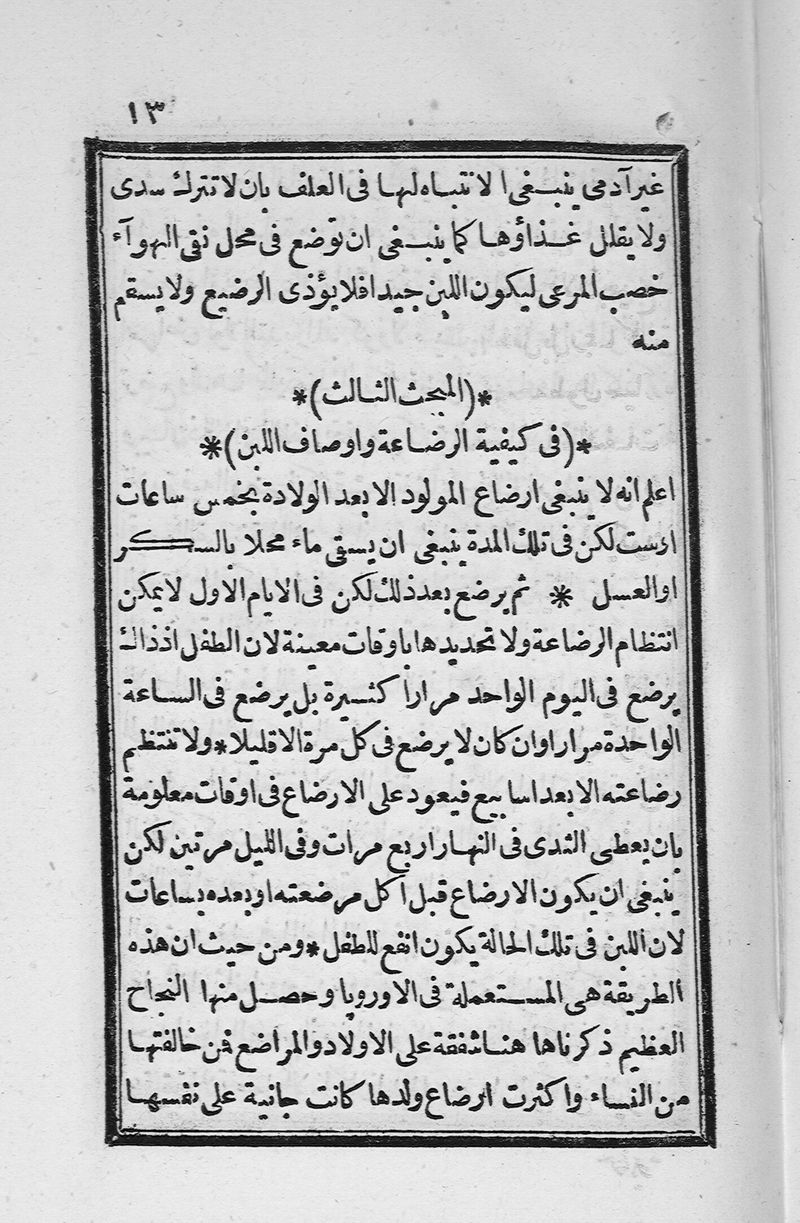 ١٣
غير آدمى ينبغى الانتباه لها فى العلف بان لا تترك سدى
ولا يقلل غذاؤها كما ينبغى ان توضع فى محل نقى الهوآء
خصب المرعى ليكون اللبن جيدا فلا يؤذى الرضيع ولا يسقم
منه
*(المبحث الثالث)*
*(فى كيفية الرضاعة واوصاف اللبن)*
اعلم انه لا ينبغى ارضاع المولود الا بعد الولادة بخمس ساعات
اوست لكن فى تلك المدة ينبغى ان يسقى ماء محلا بالسكر
او العسل * ثم يرضع بعد ذلك لكن فى الايام الاول لا يمكن
انتظام الرضاعة ولا تحديدها باوقات معينة لان الطفل اذ ذاك
يرضع فى اليوم الواحد مرارا كثيرة بل يرضع فى الساعة
الواحدة مرارا وان كان لا يرضع فى كل مرة الا قليلا * ولا تنتظم
رضاعته الا بعد اسابيع فيعود على الارضاع فى اوقات معلومة
بان يعطى الثدى فى النهار اربع مرات وفى الليل مرتين لكن
ينبغى ان يكون الارضاع قبل اكل مرضعته او بعده بساعات
لان اللبن فى تلك الحالة يكون انفع للطفل * ومن حيث ان هذه
الطريقة هى المستعملة فى الاوروپا وحصل منها النجاح
العظيم ذكرناها هنا شفقة على الاولاد والمراضع فمن خالفتها
من النساء واكثرت ارضاع ولدها كانت جانية على نفسها